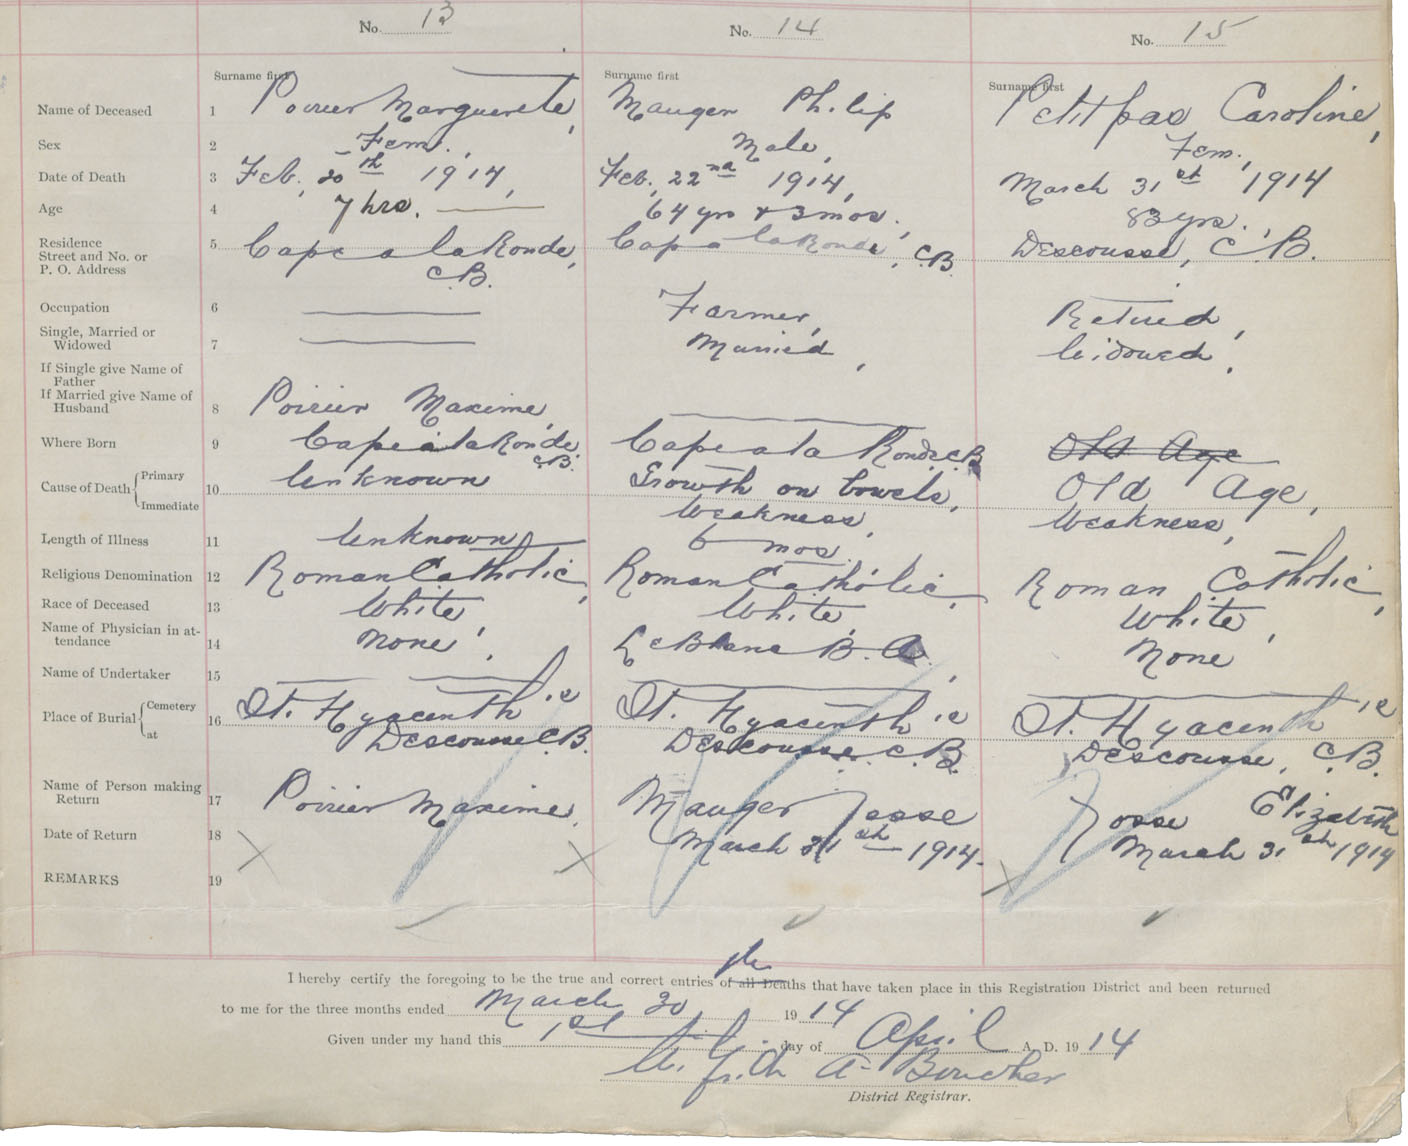 No. 13 No. 14 No. 15
Surname first Surname first Surname first
Name of Deceased 1 Poirier Marguerete, Mauger Philip Petitpas Caroline,
Sex 2 Fem., Male, Fem.,
Date of Death 3 Feb. 20th 1914, Feb. 22nd 1914, March 31st 1914
Age 4 7 hrs. 64 yrs & 3 mos. 83 yrs.
Residence
Street and No. or 5 Cape a la Ronde, Cape a la Ronde, C.B. Descousse, C.B.
P. O. Address C.B.
Occupation 6 Farmer, Retired,
Single, Married or
Widowed 7 Married, Widowed,
If Single give Name of
Father
If Married give Name of
Husband 8 Poirier Maxime,
Where Born 9 Cape a la Ronde C.B. Cape a la Ronde C.B. Old Age
Cause of Death Primary Unknown Growth on bowels, Old Age,
Immediate 10 Weakness, Weakness,
Length of Illness 11 Unknown 6 mos.
Religious Denomination 12 Roman Catholic, Roman Catholic, Roman Catholic,
Race of Deceased 13 White, White, White,
Name of Physician in at-
tendance 14 None, LeBlanc B. A. None
Name of Undertaker 15
Place of Burial Cemetery St. Hyacinth St. Hyacinth St. Hyacinth
at 16 Descousse C.B. Descousse C.B. Descousse, C.B.
Name of Person making
Return 17 Poirier Maxime, Mauger Jesse Rosse Elizabeth
Date of Return 18 March 31st 1914. March 31st 1914
REMARKS 19
the
I hereby certify the foregoing to be the true and correct entries of all Deaths that have taken place in this Registration District and been returned
to me for the three months ended March 30 1914
Given under my hand this 1st day of April A. D. 1914
A. Boucher
District Registrar.